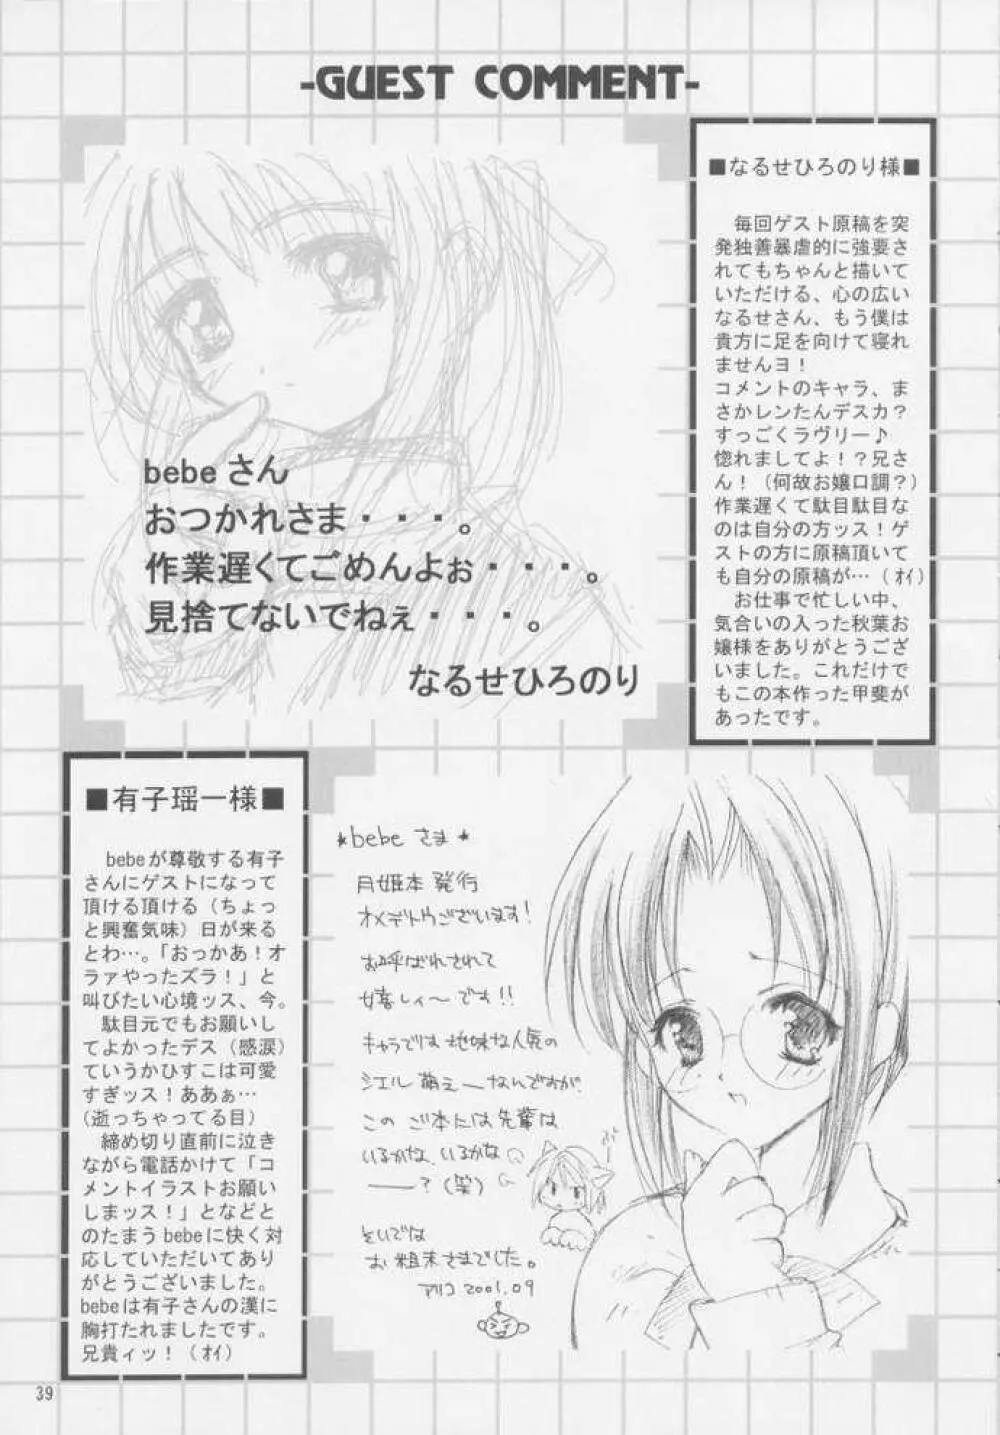 -GUEST COMMENT-
■なるせひろのり様■
毎回ゲスト原稿を突
発独善暴虐的に強要さ
れてもちゃんと描いて
いただける、心の広い
なるせさん、もう僕は
貴方に足を向けて寝れ
ませんヨ！
コメントのキャラ、ま
さかレンたんデスカ？
すっごくラヴリー♪
惚れましてよ！？兄さ
ん！（何故お嬢口調？）
作業遅くて駄目駄目な
のは自分の方ッス！ゲ
ストの方に原稿頂いて
も自分の原稿が…（ｵｲ）
お仕事で忙しい中、
気合いの入った秋葉お
嬢様をありがとうござ
いました。これだけで
もこの本作った甲斐が
あったです。
bebeさん
おつかれさま・・・。
作業遅くてごめんよぉ・・・。
見捨てないでねぇ・・・。
なるせひろのり
■有子瑶一様■
bebeが尊敬する有子
さんにゲストになって
頂ける頂ける（ちょっ
と興奮気味）日が来る
とわ…。「おっかあ！オ
ラァやったズラ！」と
叫びたい心境ッス、今。
駄目元でもお願いし
てよかったデス（感涙）
ていうかひすこは可愛
すぎッス！ああぁ…
（逝っちゃってる目）
締め切り直前に泣き
ながら電話かけて「コ
メントイラストお願い
しまッス！」となどと
のたまうbebeに快く対
応していただいてあり
がとうございました。
bebeは有子さんの漢に
胸打たれましたです。
兄貴ィッ！（ｵｲ）
★bebe さま★
月姫本 発行
オメデトウございます！
お呼ばれされて
嬉しィ〜です!!
キャラでは 地味な人気の
シエル 萌えーなんですが、
この ご本には 先輩は
いるかな、いるかな
ー？（笑）
そいでは
お粗末さまでした。
アリコ 2001.09
39